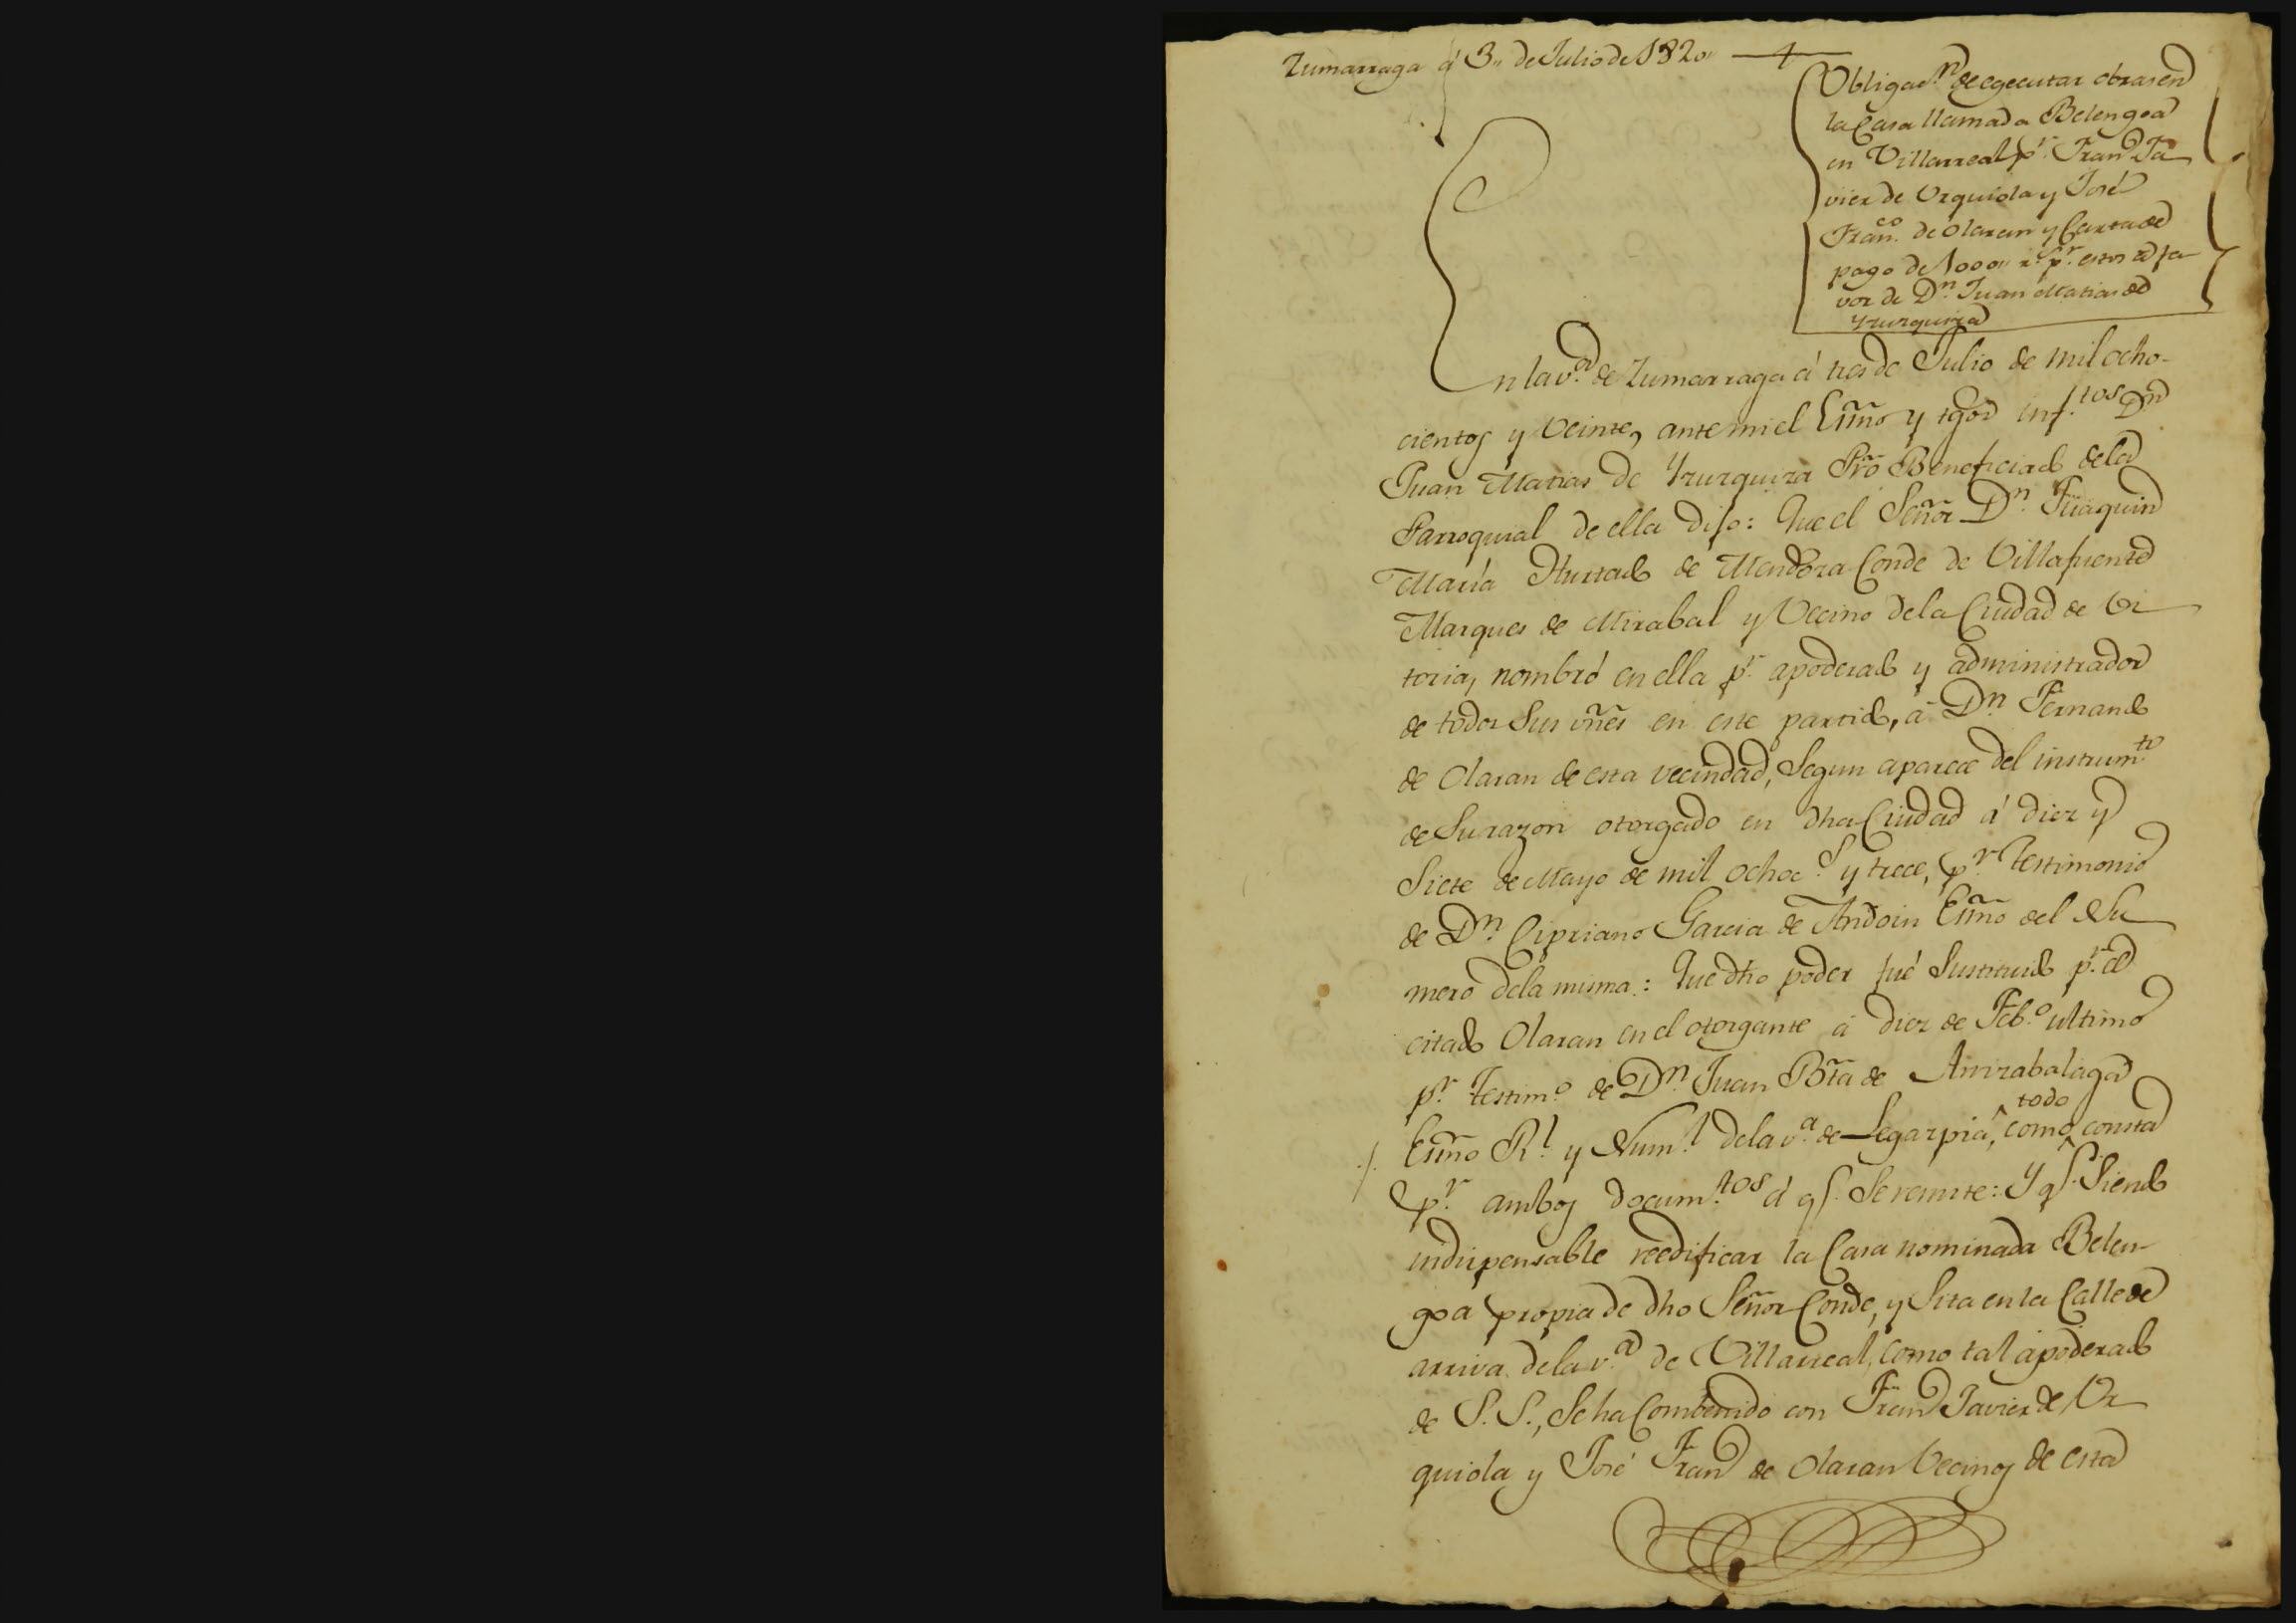 Zumarraga á 3,, de Julio de 1820
Obligac.n de egecutar obras en
la Casa llamada Belengoa
en Villarreal pr. Fran.co Ja
vier de Urquiola y José
Fran.co de Olaran y Carta de
pago de 1000,, r.s p.r estos á fa
vor de D.n Juan Matias de
Yzurquiza
En la v.a de Zumarraga á tres de Julio de mil ocho-
cientos y veinte, ante mi el Essño y tgos inf.tos D.n
Juan Matias de Yzurquiza Pr̃o Beneficiado de la
Parroquial de ella dijo: Que el Señor D.n Juaquin
María Hurtado de Mendoza Conde de Villafuente
Marques de Mirabal y Vecino de la Ciudad de Vi
toria, nombró en ella p.r apoderado y administrador
de todos sus vñes en este partido, á D.n Fernando
de Olaran de esta vecindad, segun aparece del instrum.to
de su razon otorgado en dha Ciudad á diez y
siete de Mayo de mil ochoc.s y trece, p.r testimonio
de D.n Cipriano Garcia de Andoin Essño del Nu
mero de la misma: Que dho poder fué sustituido p.r el
citado Olaran en el otorgante á diez de Feb.o ultimo
p.r testim.o de D.n Juan Bta de Arrizabalaga
Essño R.l y Num.l de la v.a de Legazpia, todo como consta
p.r ambos docum.tos á q.e se remite: Y q.e siendo
indispensable reedificar la Casa nominada Belen-
goa propia de dho Señor Conde, y sita en la Calle de
arriva de la v.a de Villarreal, como tal apoderado
de S. S., se ha combenido con Fran.co Javier de Ur
quiola y José Fran.co de Olaran vecinos de esta